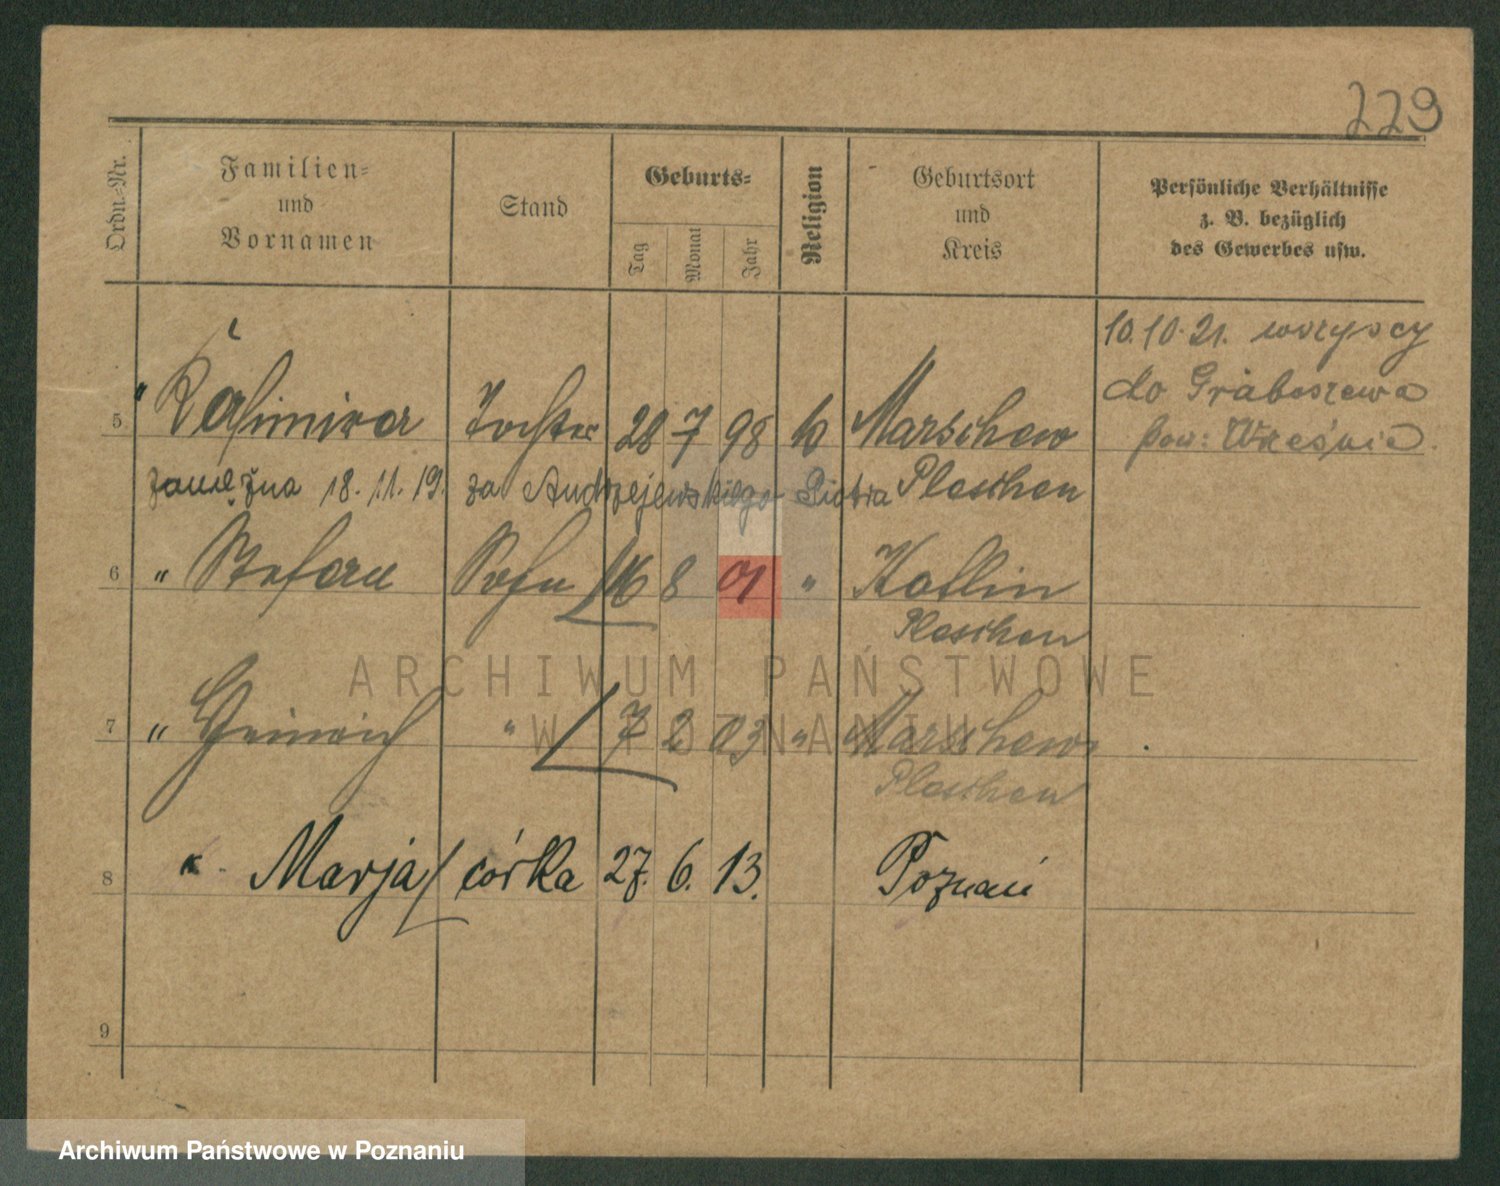 229
Ordn.-Nr.
Familien-
und
Vornamen
Stand
Geburts-
Tag
Monat
Jahr
Religion
Geburtsort
und
Kreis
Persönliche Verhältnisse
z. B. bezüglich
des Gewerbes usw.
10.10.21. wszyscy
do Graboszewa
pow: Września
5 " Kasimira Tochter 28 7 98 k Marschew
Pleschen
zamężna 18.11.19. za Andrzejewskiego Piotra
6 " Stefan Sohn 16 8 01 " Kotlin
Pleschen
7 " Heinrich " 7 2 03 " Marschew
Pleschen
8 " Marja córka 27. 6. 13. Poznań
9
ARCHIWUM PAŃSTWOWE
W POZNANIU
Archiwum Państwowe w Poznaniu